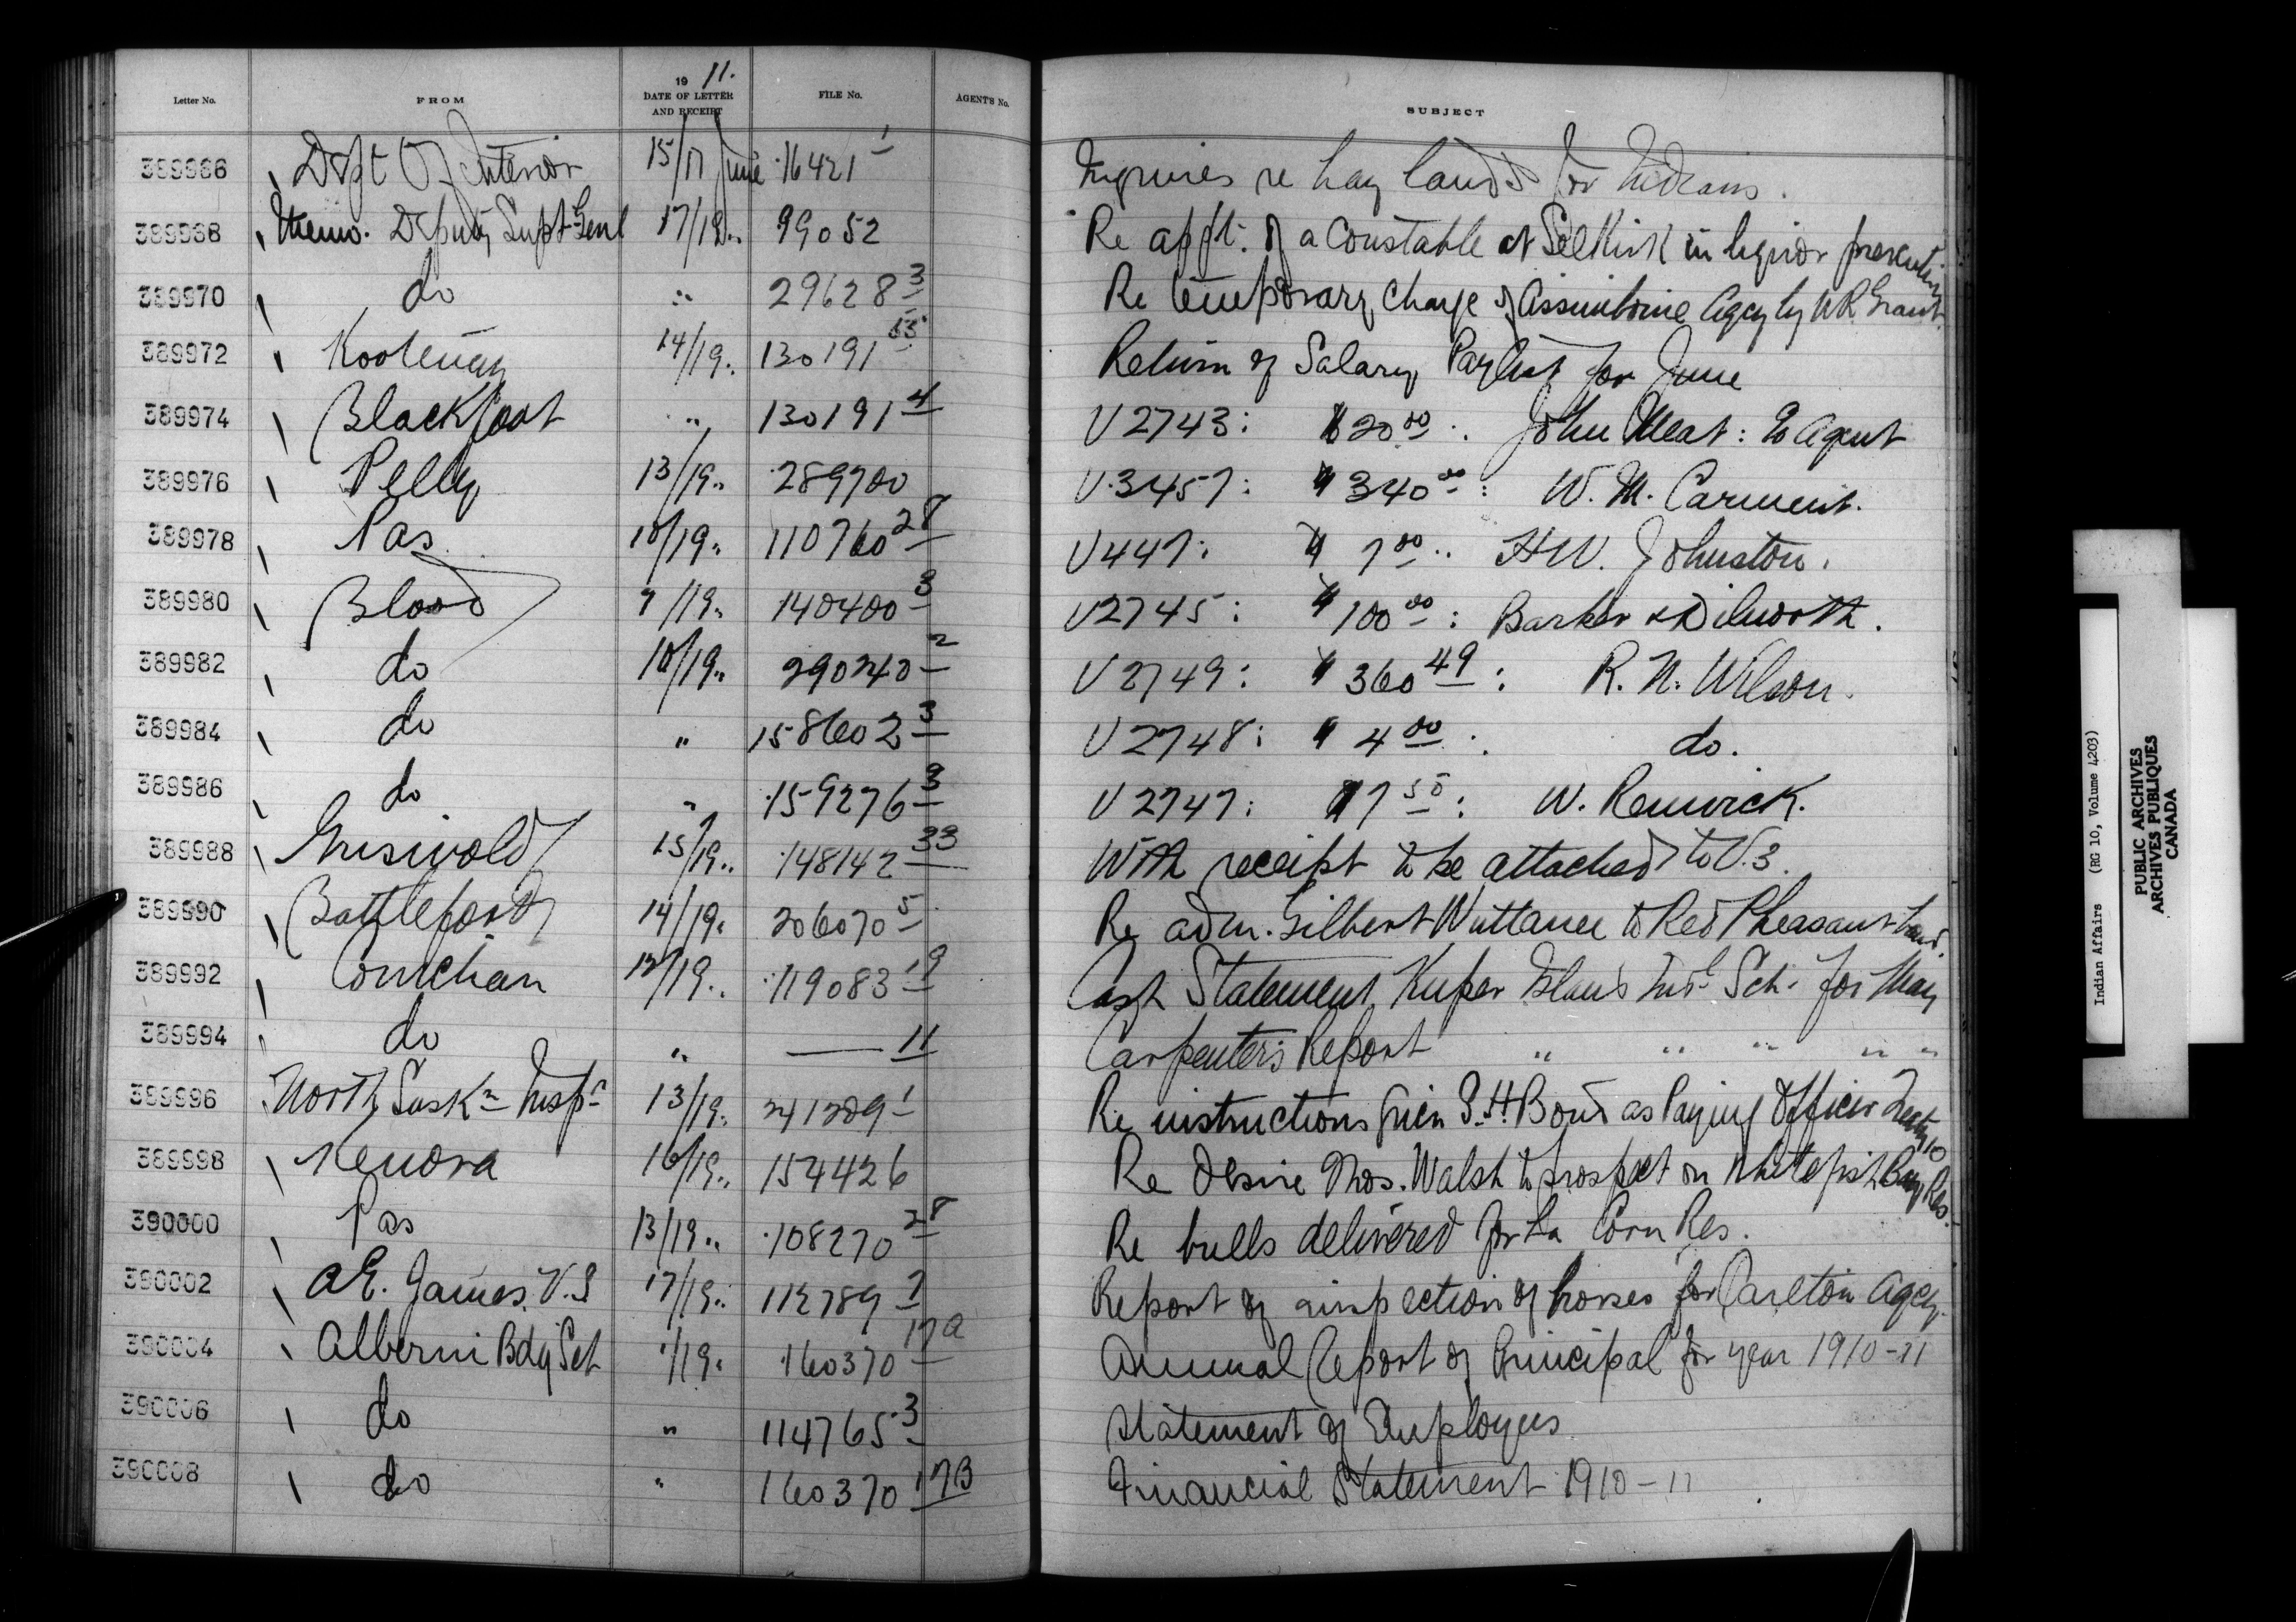 Letter No. FROM 19 11. DATE OF LETTER AND RECEIPT FILE No. AGENT'S No. SUBJECT
389966 Dept Of Interior 15/17 June 16421 1 Inquiries re hay lands for Indians.
389968 Memo. Deputy Supt Genl 17/19 .. 99052 Re appt. of a Constable at Selkirk in liquor prosecutions
389970 do " 29628 3 Re temporary charge of Assiniboine Agcy by W R Grant.
389972 Kootenay 14/19 .. 130191 55 Return of Salary Paylist for June
389974 Blackfoot " 130191 4 V 2743: $20.00 : John Meat: to Agent
389976 Pelly 13/19 .. 289700 V.3457: $340.00 : W. M. Carment.
389978 Pas 10/19 .. 110760 28 V447: $7.00 : H W. Johnston.
389980 Blood 9/19 .. 140400 3 V2745: $100.00 : Barker & Dilworth.
389982 do 10/19 .. 290240 2 V 2749: $360.49 : R. N. Wilson.
389984 do " 158602 3 V 2748: $4.00 : do.
389986 do " 159276 3 V 2747: $7.50 : W. Renwick.
389988 Griswold 15/19 .. 148142 33 With receipt to be attached to V.3.
389990 Battleford 14/19 .. 206070 5 Re adm. Gilbert Wuttanee to Red Pheasant band
389992 Cowichan 12/19 .. 119083 19 Cash Statement Kuper Island Indl Sch. for May
389994 do " — 11 Carpenter's Report " " " " "
389996 North Saskn Inspr 13/19 .. 241209 1 Re instructions given S.H. Bond as Paying Officer Treaty 10
389998 Kenora 16/19 .. 154426 Re desire Thos. Walsh to prospect on Whitefish Bay Res.
390000 Pas 13/19 .. 108270 28 Re bulls delivered for La Corn Res.
390002 A E. James. V.S 17/19 .. 112789 7 Report of inspection of horses for Carlton Agcy.
390004 Alberni Bdg Sch /19 .. 160370 17A Annual Report of Principal for year 1910-11
390006 do " 114765 3 Statement of Employees
390008 do " 160370 17B Financial Statement 1910-11
Indian Affairs (RG 10, Volume 4203)
PUBLIC ARCHIVES
ARCHIVES PUBLIQUES
CANADA